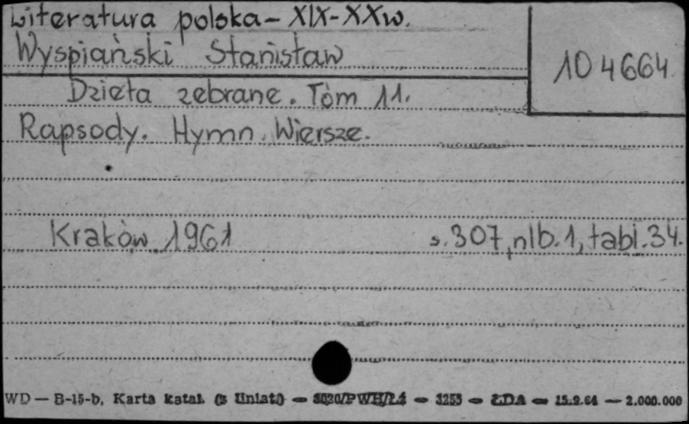 Literatura polska - XIX-XXw.
Wyspiański Stanisław
104664
Dzieła zebrane. Tom 11.
Rapsody. Hymn. Wiersze.
Kraków 1961 s. 307, nlb. 1, tabl. 34.
WD — B-15-b. Karta katal. — 3253 — ŁDA — 15.9.64 — 2.000.000